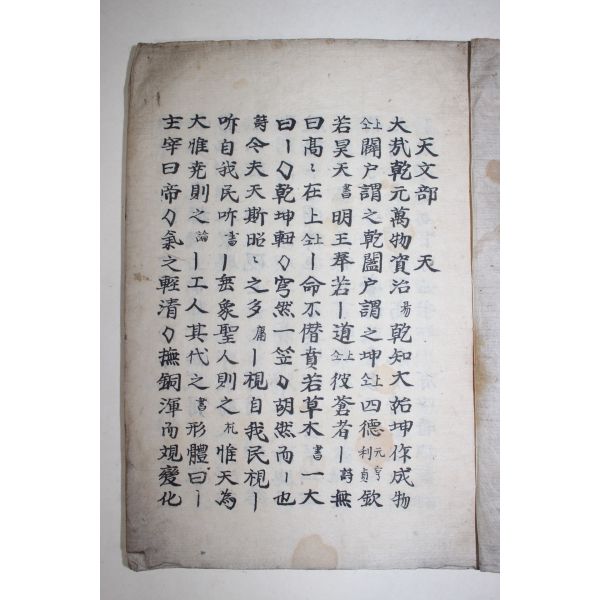 天文部 天
大㢤乾元萬物資治易乾知大始坤作成物
仝上闢户謂之乾闔户謂之坤仝上四德元亨利貞欽
若昊天書明王奉若丨道仝上彼蒼者丨詩無
曰髙〻在上仝上丨命不僭賁若草木書一大
曰丨〇乾坤軒〇穹然一笠〇胡然而丨也
詩今夫天斯昭〻之多庸丨視自我民視丨
听自我民听書丨垂象聖人則之禮惟天為
大惟尭則之論丨工人其代之書形體曰丨
主宰曰帝〇氣之輕清〇撫銅渾而覌變化